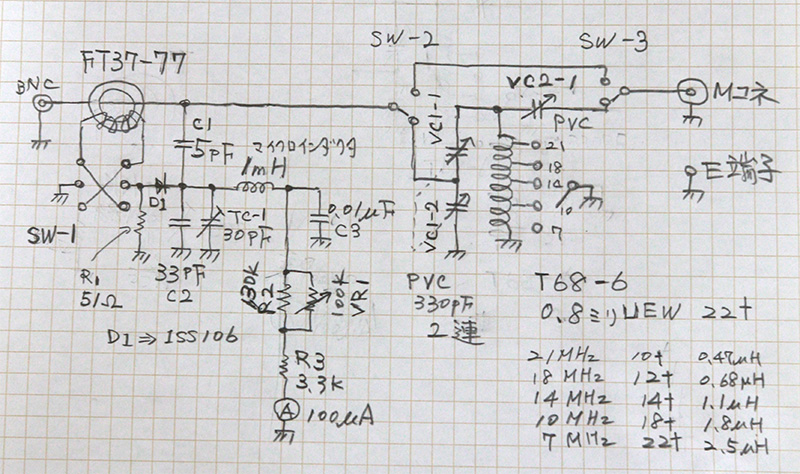 SW-2
SW-3
FT37-77
BNC
VC2-1
Mコネ
PVC
C1
5pF
マイクロインダクタ
1mH
VC1-1
VC1-2
21
18
14
10
7
E端子
SW-1
D1
TC-1
30pF
0.01μF
C3
R1
51Ω
33pF
C2
R2
100K
VR1
PVC
330pF
2連
T68-6
0.8ミリUEW 22t
D1⇒1SS106
R3
3.3K
A 100μA
21MHz 10t 0.47μH
18MHz 12t 0.68μH
14MHz 14t 1.1μH
10MHz 18t 1.8μH
7MHz 22t 2.5μH